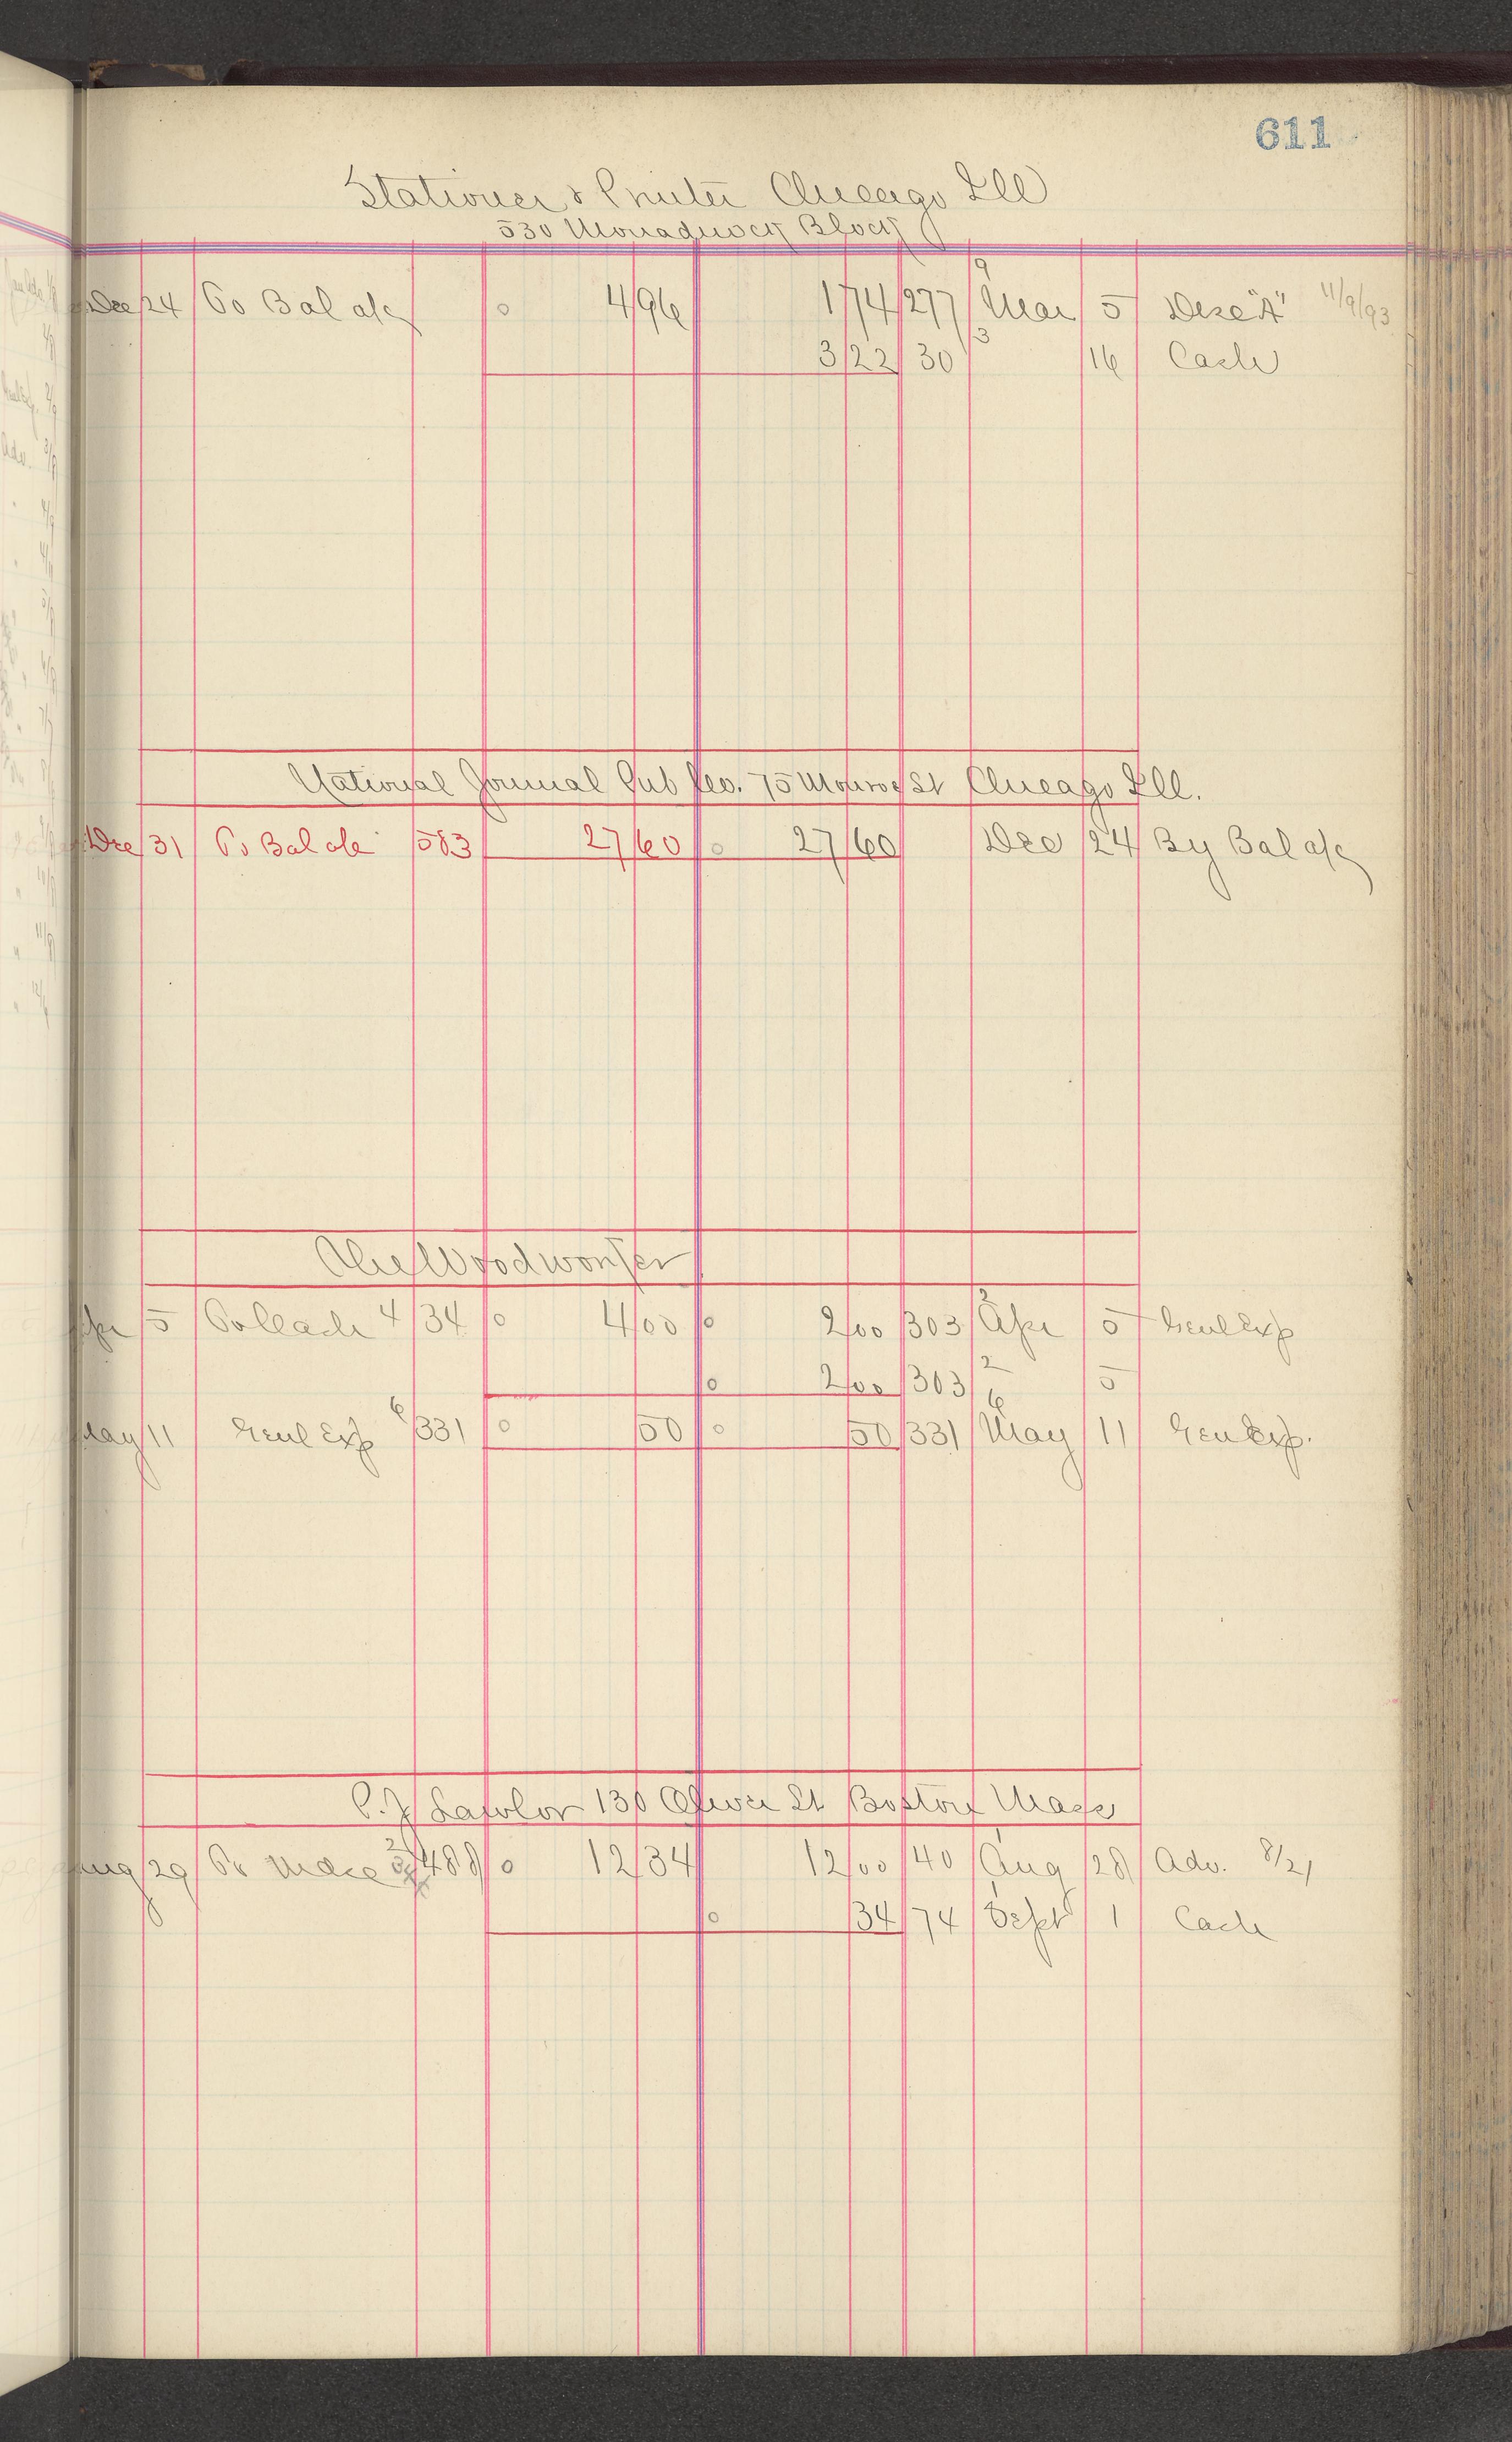 611
Stationer & Printer Chicago Ill
530 Monadnock Block
Dec 24 To Bal a/c 0 4 96 1 74 277 9 Mar 5 Disc "A" 11/9/93
3 22 30 3 16 Cash
National Journal Pub Co. 75 Monroe St Chicago Ill.
Dec 31 To Bal a/c 583 27 60 0 27 60 Dec 24 By Bal a/c
Apr 5 To Cash 4 34 0 4 00 0 2 00 303 2 Apr 5 Genl Exp
0 2 00 303 2 5
May 11 Genl Exp 6 331 0 50 0 50 331 6 May 11 Gen Exp.
P. J. Lawlor 130 Oliver St Boston Mass
Aug 29 To Mdse 2 488 0 12 34 12 00 40 Aug 28 Adv. 8/21
0 34 74 Sept 1 Cash